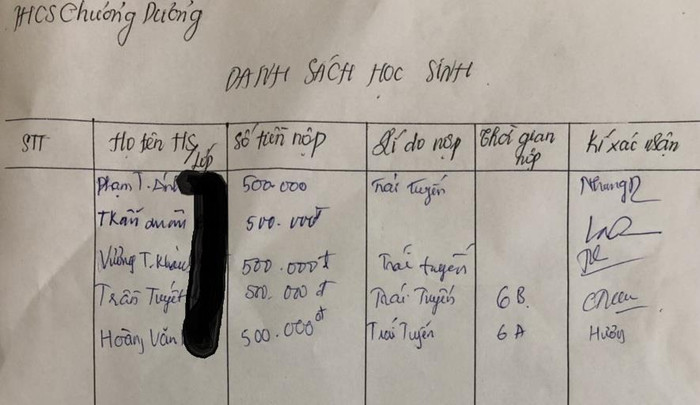 THCS Chương Dương
DANH SÁCH HỌC SINH
STT Họ tên HS/Lớp Số tiền nộp Lí do nộp Thời gian nộp Kí xác nhận
Phạm T. 500.000 Trái Tuyến
Trần 500.000đ
Vương T. 500.000đ Trái tuyến
Trần Tuyết 500.000đ Trái Tuyến 6B
Hoàng Văn 500.000đ Trái Tuyến 6A Hương